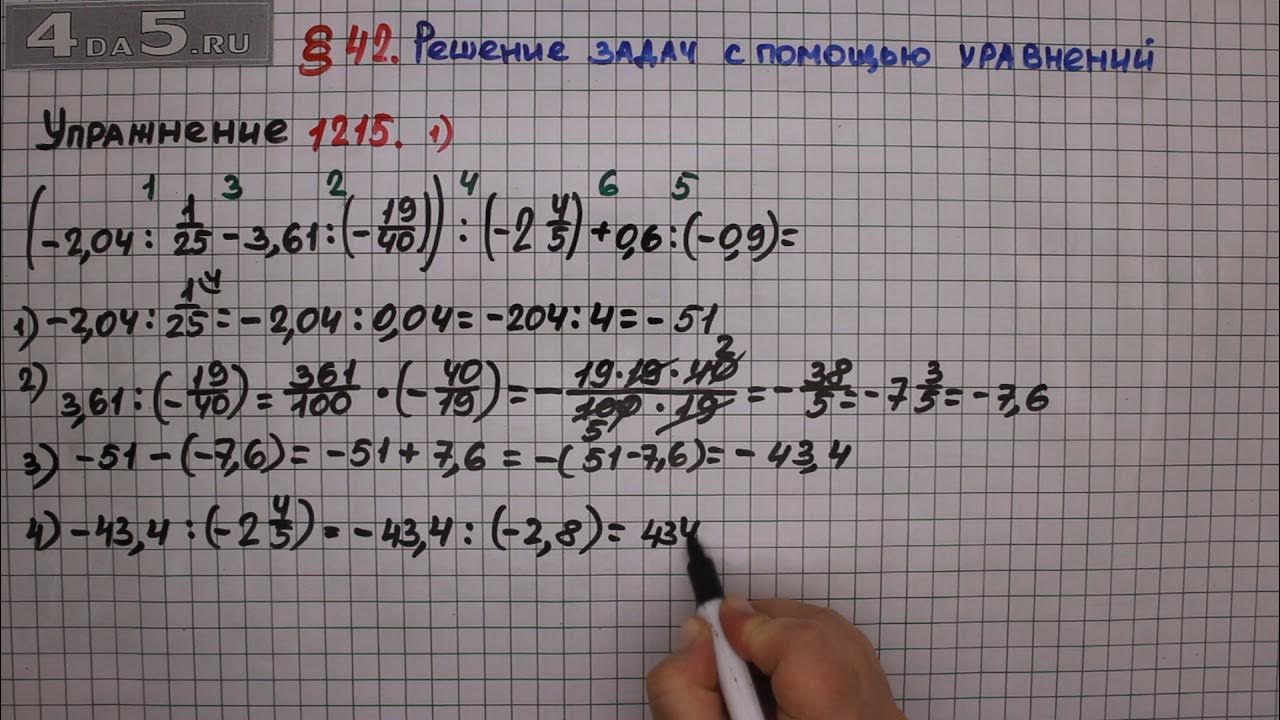 4DA5.RU
§ 42. Решение задач с помощью уравнений
Упражнение 1215. 1)
1 3 2 4 6 5
(-2,04 : 1/25 - 3,61 : (-19/40)) : (-2 4/5) + 0,6 : (-0,9) =
1) -2,04 : 1/25 ^4 = -2,04 : 0,04 = -204 : 4 = -51
2) 3,61 : (-19/40) = 361/100 · (-40/19) = - 19·19·40 ^2 / 100 _5 · 19 = - 38/5 = -7 3/5 = -7,6
3) -51 - (-7,6) = -51 + 7,6 = -(51 - 7,6) = -43,4
4) -43,4 : (-2 4/5) = -43,4 : (-2,8) = 434